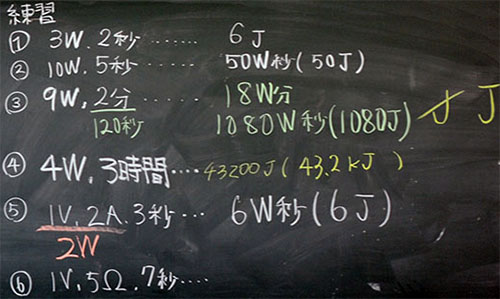 練習
① 3W.2秒…… 6J
② 10W.5秒…… 50W秒(50J)
③ 9W.2分…… 18W分
120秒 1080W秒(1080J) J J
④ 4W.3時間…… 43200J(43.2kJ)
⑤ 1V.2A.3秒… 6W秒(6J)
2W
⑥ 1V.5Ω.7秒……